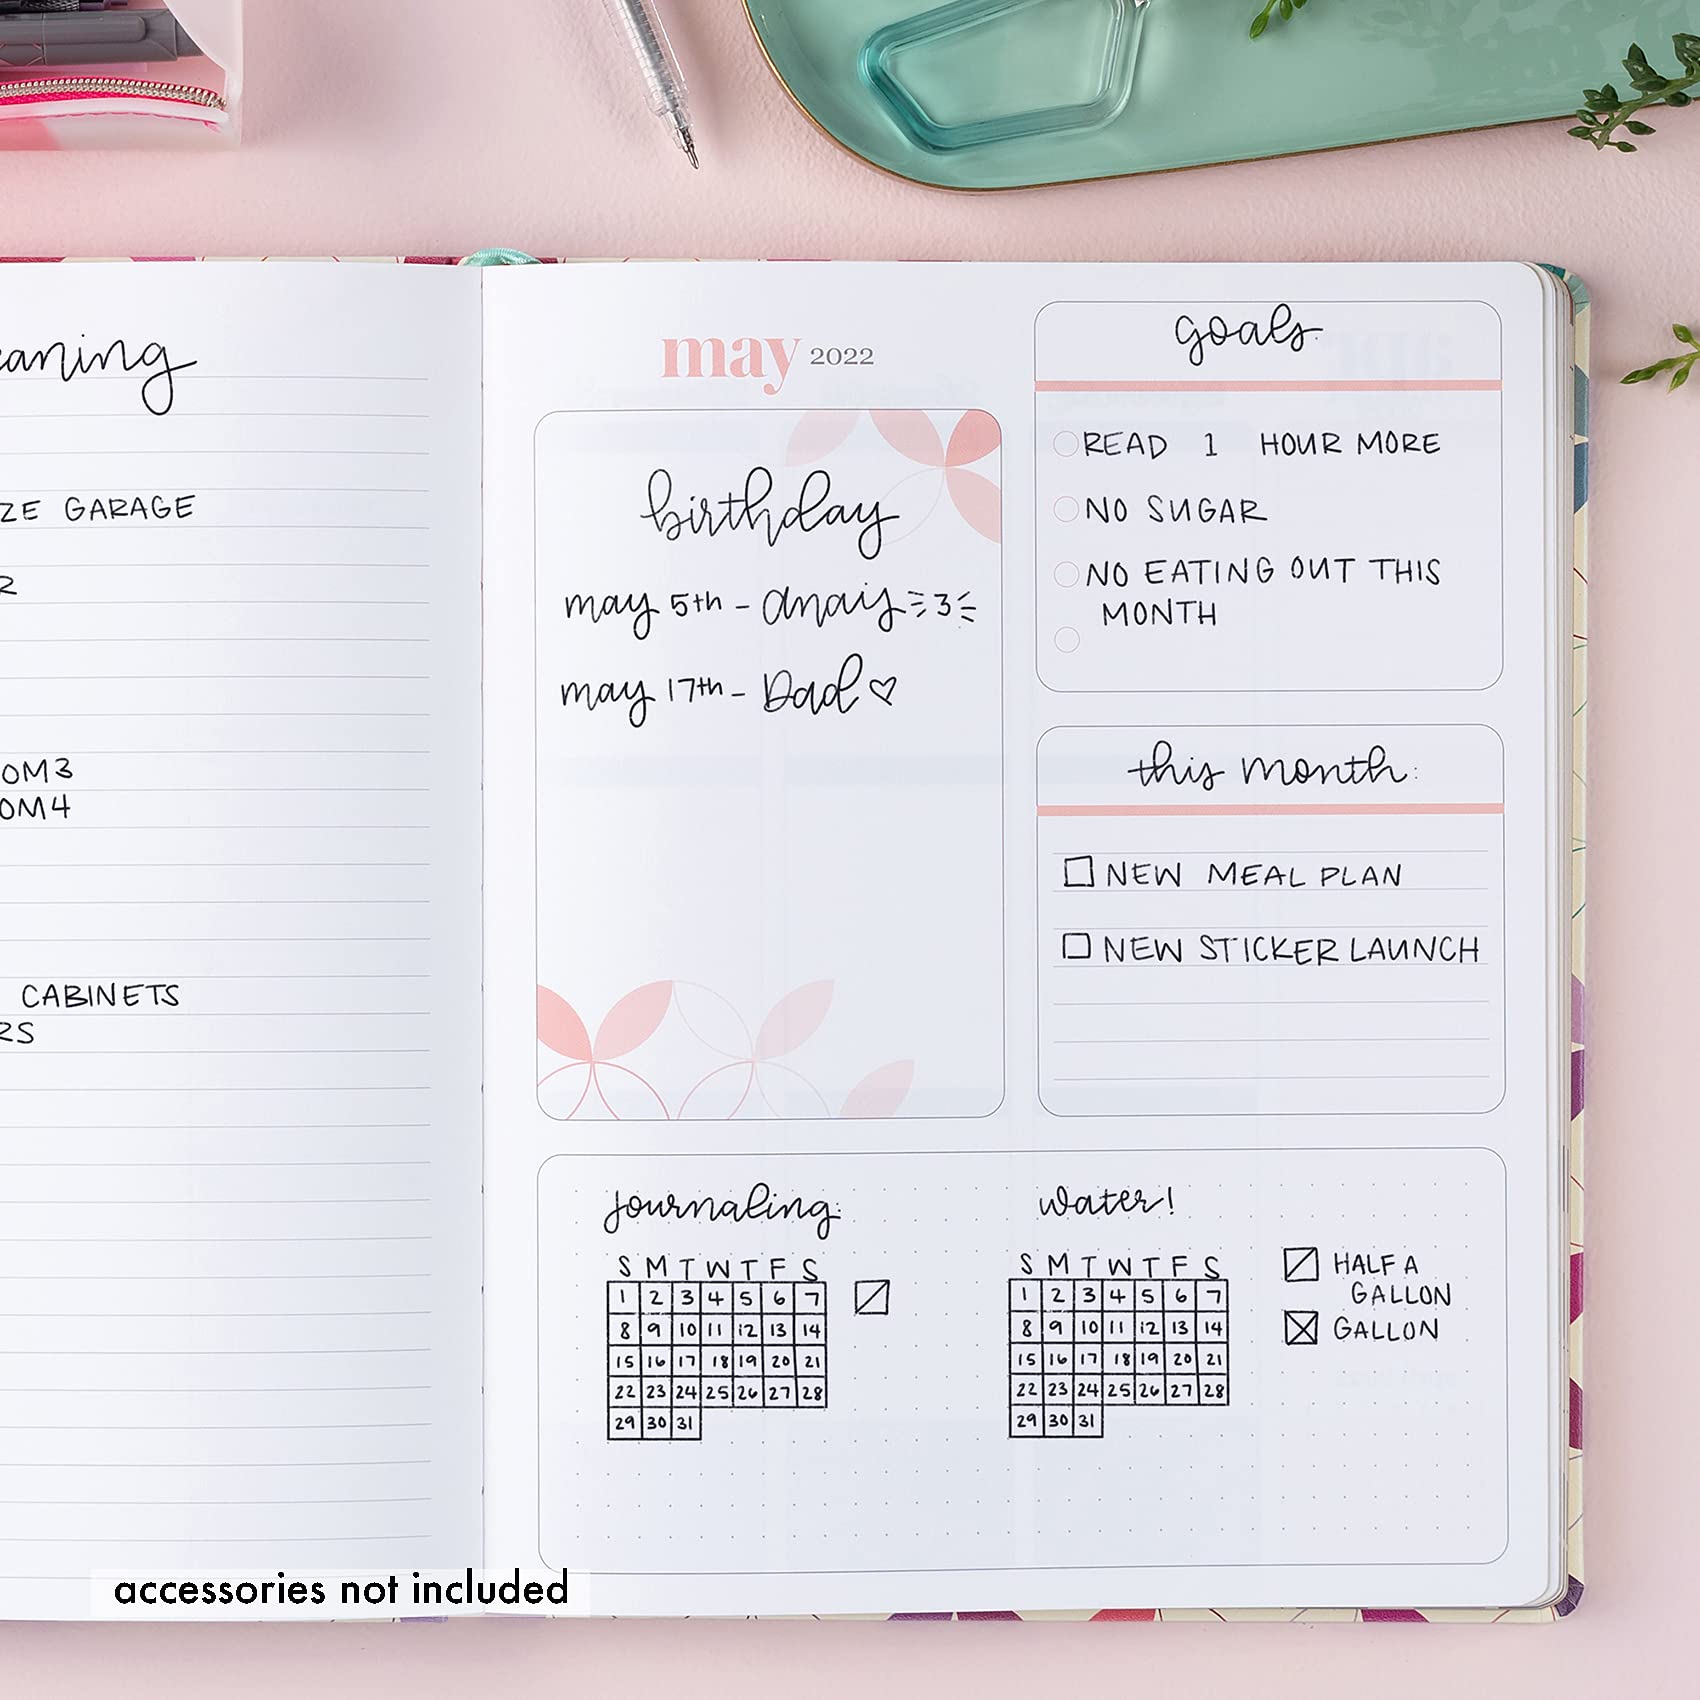 GARAGE
CABINETS
may 2022
birthday
may 5th - Anais 3
may 17th - Dad
goals:
READ 1 HOUR MORE
NO SUGAR
NO EATING OUT THIS
MONTH
this month:
NEW MEAL PLAN
NEW STICKER LAUNCH
journaling:
S M T W T F S
1 2 3 4 5 6 7
8 9 10 11 12 13 14
15 16 17 18 19 20 21
22 23 24 25 26 27 28
29 30 31
water!
S M T W T F S
1 2 3 4 5 6 7
8 9 10 11 12 13 14
15 16 17 18 19 20 21
22 23 24 25 26 27 28
29 30 31
HALF A
GALLON
GALLON
accessories not included